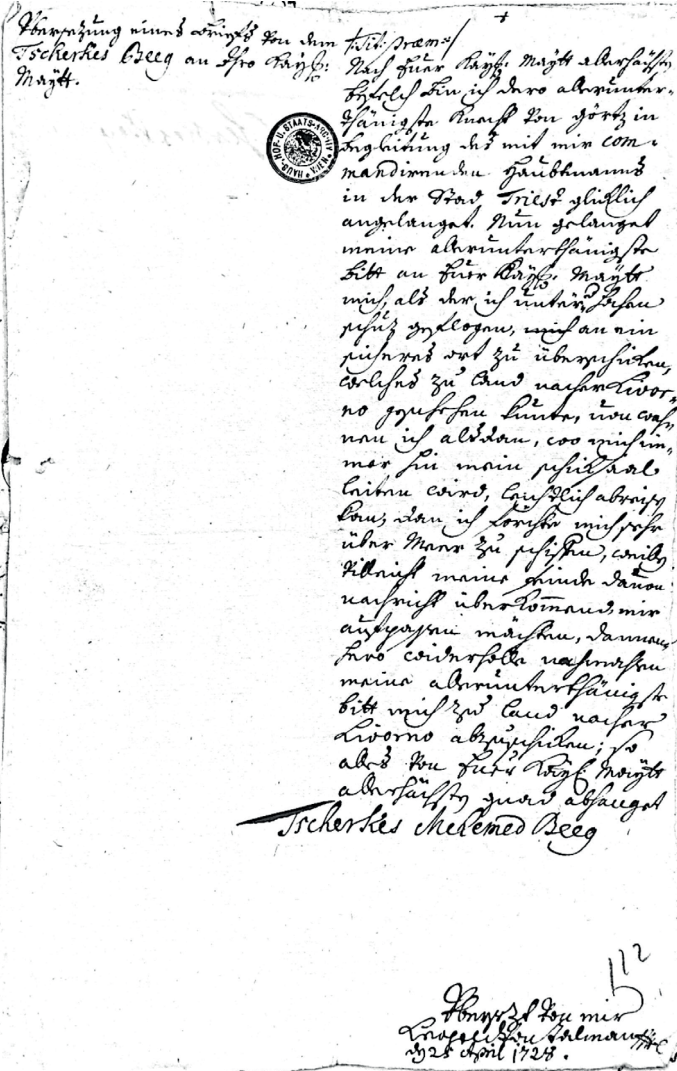 Übersezung eines Briefs von dem
Tscherkes Beeg an Ihro Kayß:
Maÿtt.
Tit: præm:
Nach Euer Kayß: Maÿtt allerhöchsten
befelch bin ich dero allerunter-
thänigste Knecht von Görtz in
begleitung des mit mir com-
mandirenden Haubtmanns
in der Stad Triest glicklich
angelanget. Nun gelanget
meine allerunterthänigste
bitt an Euer Kayß: Maÿtt
mich, als der ich unter dero hohen
schuz geflogen, mich an ein
sicheres ort zu überschicken,
welches zu land nacher Livor-
no geschehen künte, von wan-
nen ich alsdan, wo mich im-
mer hin mein schicksaal
leiten wird, leichtlich abreisen
kan, dan ich förchte mich sehr
über Meer zu schiffen, weillen
villeicht meine feinde davon
nachricht überkommend, mir
aufpassen möchten, dannen-
hero widerholle nochmahlen
meine allerunterthänigste
bitt mich zu land nacher
Livorno abzuschicken; so
alles von Euer Kayß Maÿtt
allerhöchsten gnad abhanget
Tscherkes Mehemed Beeg
HAUS-, HOF- U. STAATS-ARCHIV WIEN
112
Übersezt von mir
Leopold von Talman
den 25 April 1728.